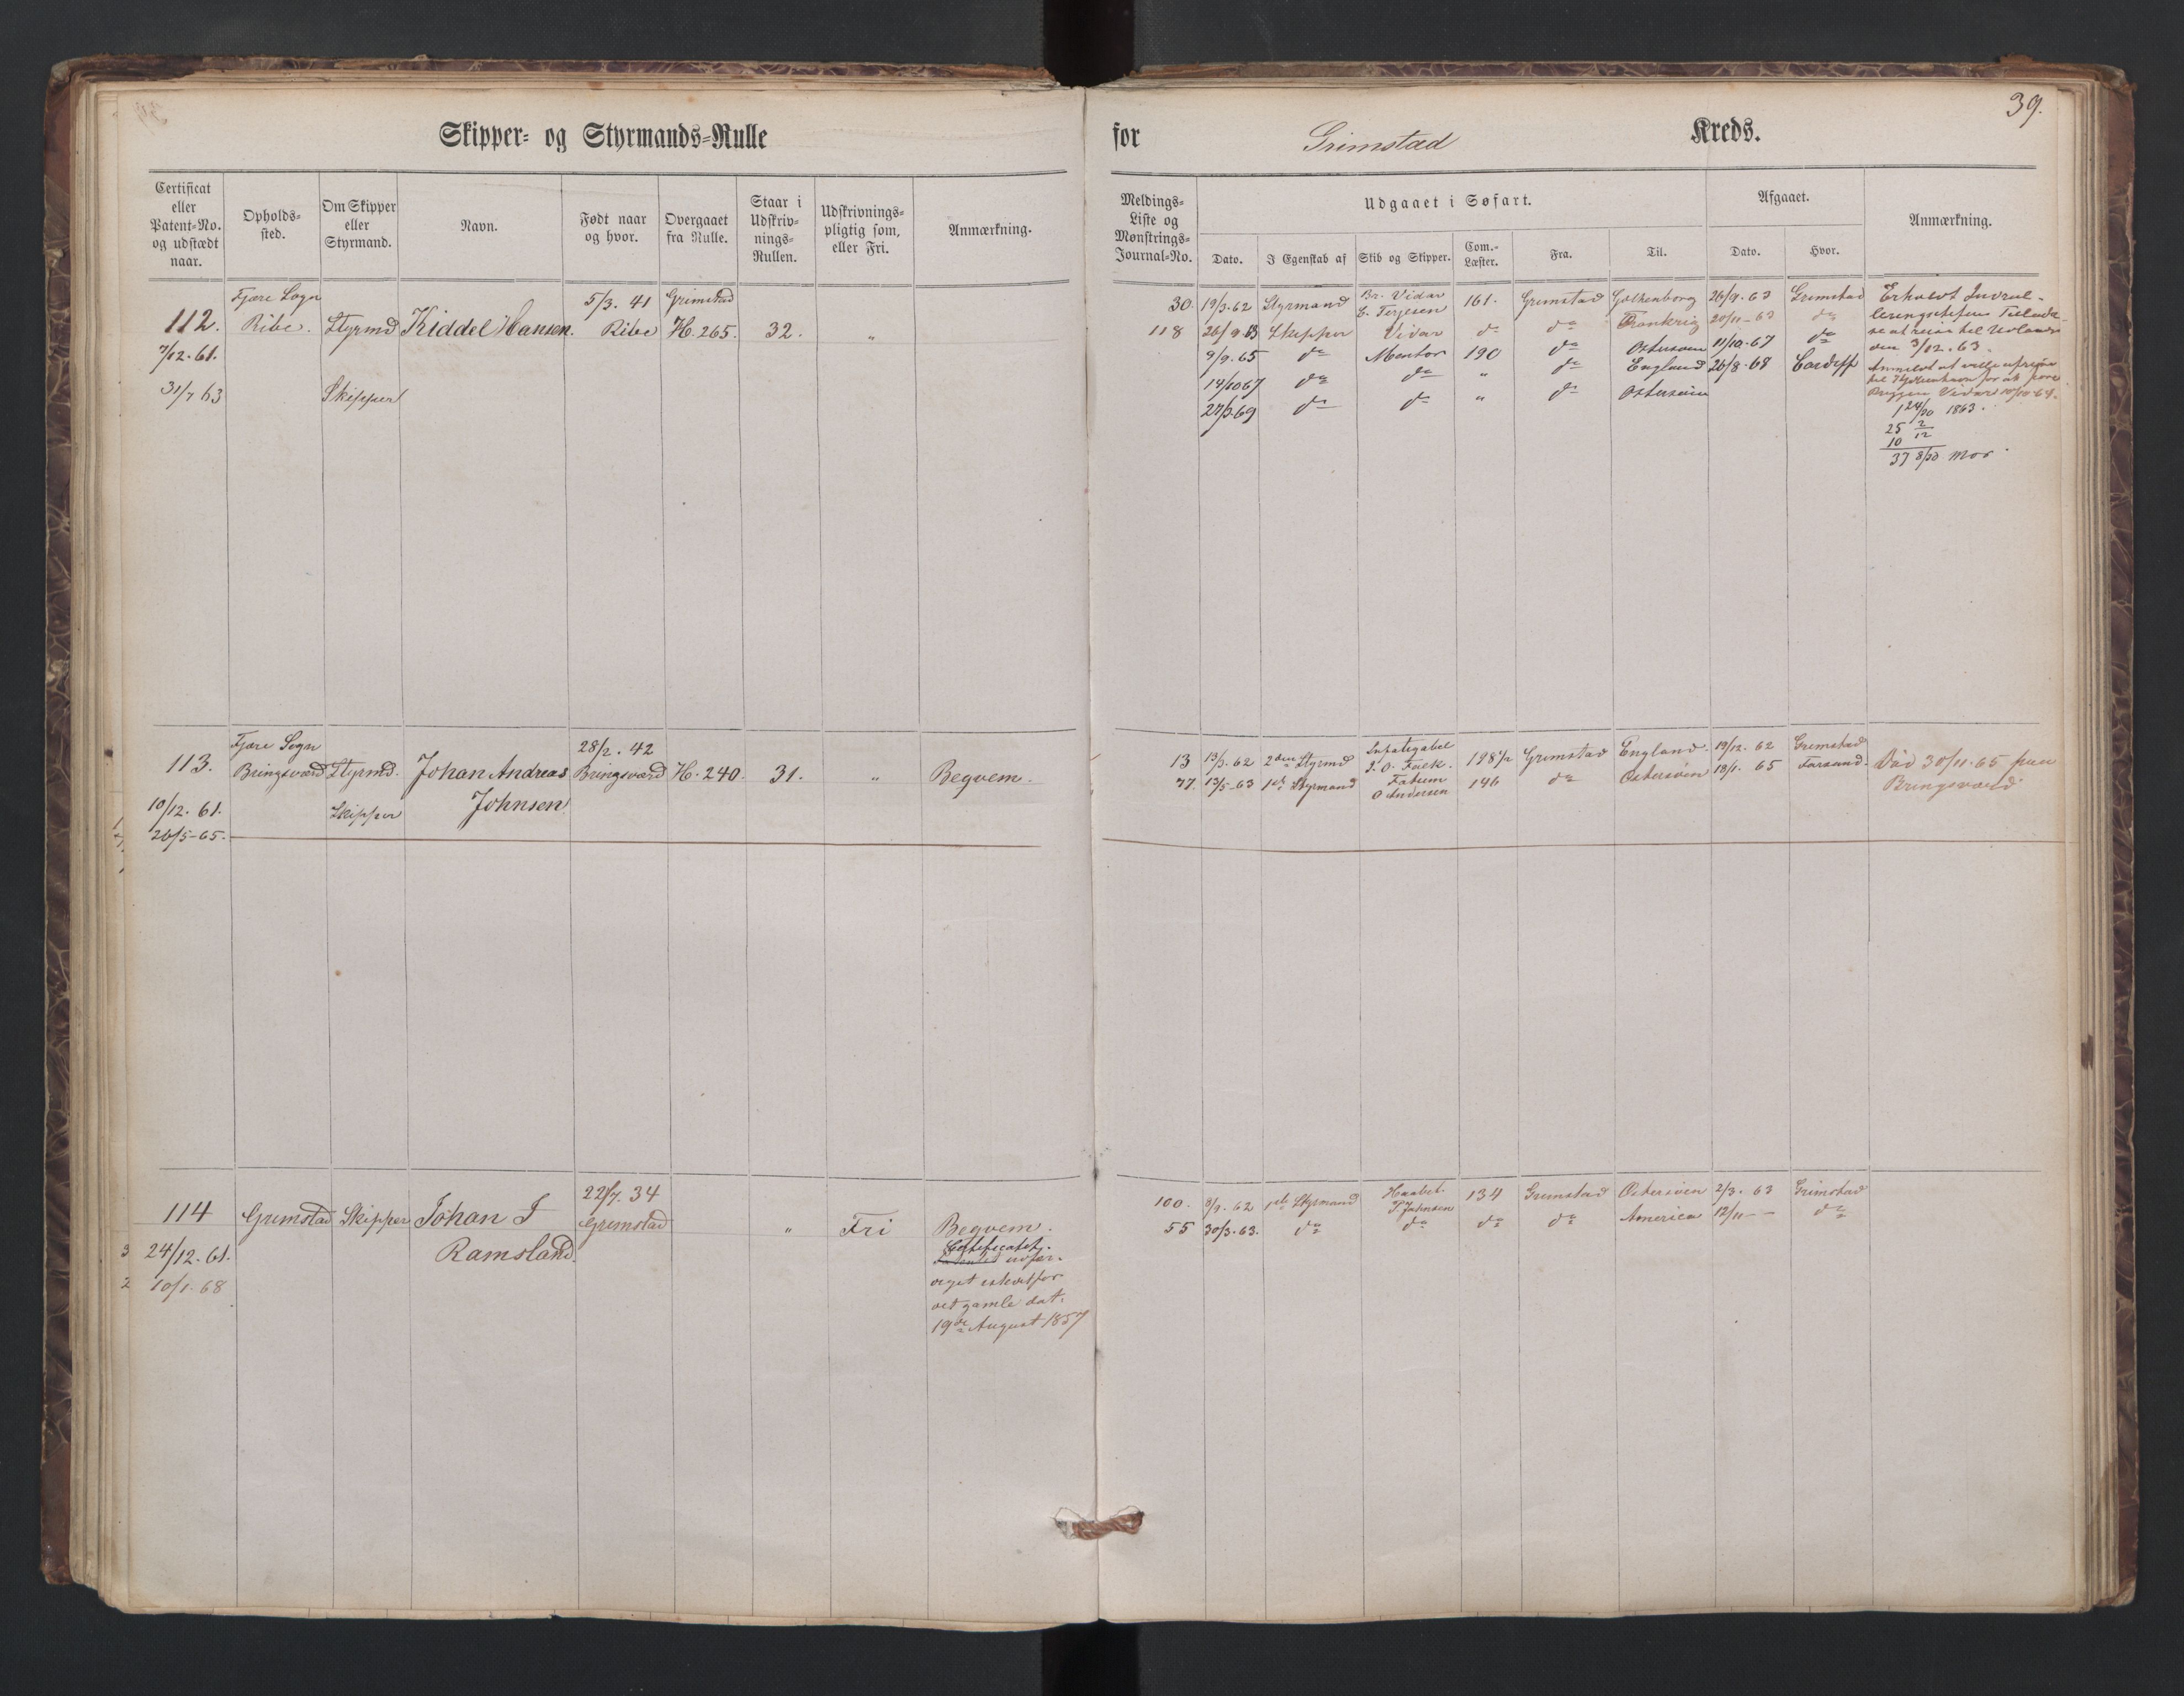 39.
Skipper- og Styrmands-Rulle for Grimstad Kreds.
Certificat eller Patent-No. og udstædt naar.
Opholds-sted.
Om Skipper eller Styrmand.
Navn.
Født naar og hvor.
Overgaaet fra Rulle.
Staar i Udskriv-nings-Rullen.
Udskrivnings-pligtig som, eller Fri.
Anmærkning.
Meldings-Liste og Mønstrings-Journal-No.
Udgaaet i Søfart.
Dato.
I Egenskab af
Skib og Skipper.
Com.-Læster.
Fra.
Til.
Afgaaet.
Dato.
Hvor.
Anmærkning.
112.
7/12. 61.
31/7 63
Fjære Sogn
Ribe.
Styrmd
Skipper
Kiddel Hansen.
5/3. 41
Ribe
Grimstad
H. 265.
32.
"
30. 19/3. 62 Styrmand Br. Vidar E. Terjesen 161. Grimstad Gothenborg 26/9. 63 Grimstad
118 26/9. 63 Skipper Vidar do do Frankrig 20/11-63 do
9/9. 65 do Mentor 190 do Østersøen 11/10. 67 do
14/10 67 do do " do England 26/8. 68 Cardiff
27/3. 69 do do " do Østersøen
Erholdt Indrul-
leringschefens Tilladel-
se at reise til Udlandet
den 3/12. 63.
Anmeldt at ville afreise
til Kjøbenhavn for at føre
Briggen Vidar 10/10 64.
1 24/30 1863.
25 2/12
10
37 8/30 Mdr.
113.
10/12. 61.
26/5-65.
Fjære Sogn
Bringsværd
Styrmd.
Skipper
Johan Andreas
Johnsen
28/2. 42
Bringsværd
H. 240.
31.
"
Begvem.
13 13/3. 62 2den Styrmd J. O. Falk. 198 1/2 Grimstad England. 19/12. 62 Grimstad
77. 13/5-63 1st Styrmand Fatum O Andersen 146 do Østersøen 18/1. 65 Farsund.
Død 30/11. 65 paa
Bringsværd
114
24/12. 61.
10/1. 68
3
2
Grimstad
Skipper
Johan J
Ramsland.
22/7. 34
Grimstad
"
Fri
Begvem.
Certificatet.
Patentet udfær-
diget istedetfor
det gamle dat.
19de August 1857
100. 8/9. 62 1st Styrmand Haabet. T. Johnsen 134 Grimstad Østersøen 2/3. 63 Grimstad
55 30/3. 63. do do do do America 12/11 - - do